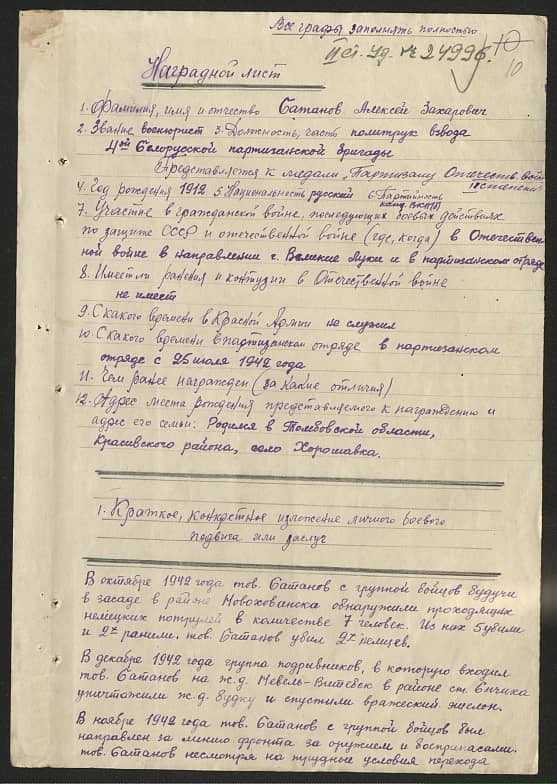 Все графы заполнять полностью
II ст. уд. № 24996.
10
10
Наградной лист
1. Фамилия, имя и отчество Сатанов Алексей Захарович
2. Звание военюрист 3. Должность, часть политрук взвода
4ой Белорусской партизанской бригады
Представляется к медали „Партизану Отечествен. войны
I степени"
4. Год рождения 1912 5. Национальность русский 6. Партийность
канд. ВКП(б)
7. Участие в гражданской войне, последующих боевых действиях
по защите СССР и отечественной войне (где, когда) в Отечествен-
ной войне в направлении г. Великие Луки и в партизанском отряде
8. Имеет ли ранения и контузии в Отечественной войне
не имеет
9. С какого времени в Красной Армии не служил
10. С какого времени в партизанском отряде в партизанском
отряде с 25 июля 1942 года
11. Чем ранее награжден (за какие отличия)
12. Адрес места рождения представляемого к награждению и
адрес его семьи: Родился в Томбовской области,
Красивского района, село Хорошавка.
1. Краткое, конкретное изложение личного боевого
подвига или заслуг
В октябре 1942 года тов. Сатанов с группой бойцов будучи
в засаде в районе Новохованска обнаружили проходящих
немецких патрулей в количестве 7 человек. Из них 5 убили
и 2х ранили. тов. Сатанов убил 2х немцев.
В декабре 1942 года группа подрывников, в которую входил
тов. Сатанов на ж.д. Невель-Витебск в районе ст.
уничтожили ж.д. будку и спустили вражеский эшелон.
В ноябре 1942 года тов. Сатанов с группой бойцов был
направлен за линию фронта за оружием и боеприпасами.
тов. Сатанов несмотря на трудные условия перехода